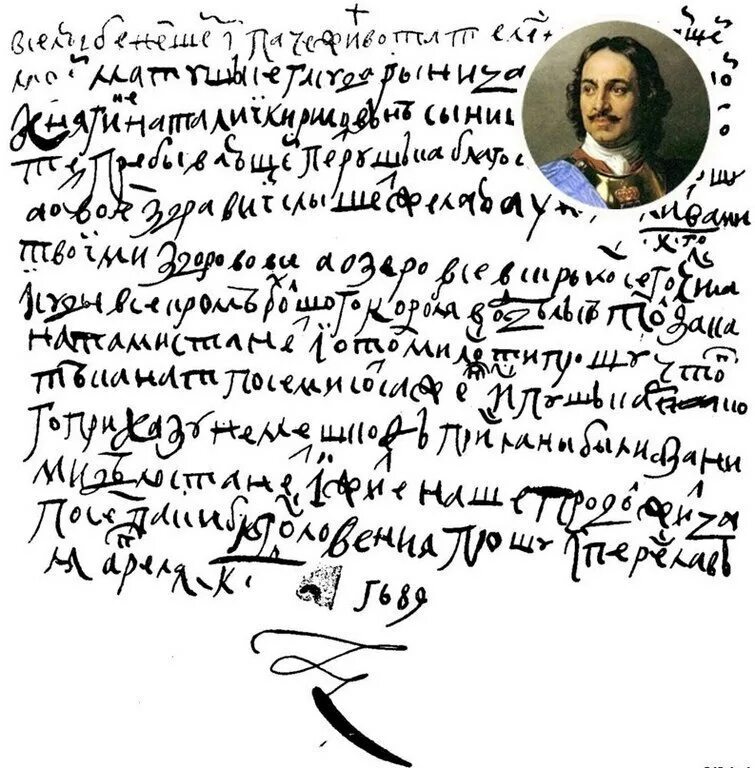 вселюбенеше i паче живота теле
моеи матушъке гасударыни ца
княгине наталии кириловнъ сыниш
те пребывающеи петрушъка благос
а о твоем здравии слышеть желаю а у н
твоими здорово все а озеро все вскрылось сего 20 чи
i суды все кромъ болшого корабля в одълкъ толко за кана
натами станет i о том милости прошу чтоп
тъ канаты по семисот сажен iс пушъка
го приказу не мешкоф присланы были а за ни
ми дъло станет i житие наше продолжица
по сем паки благословения прошу iс переславъ
апреля К
1689